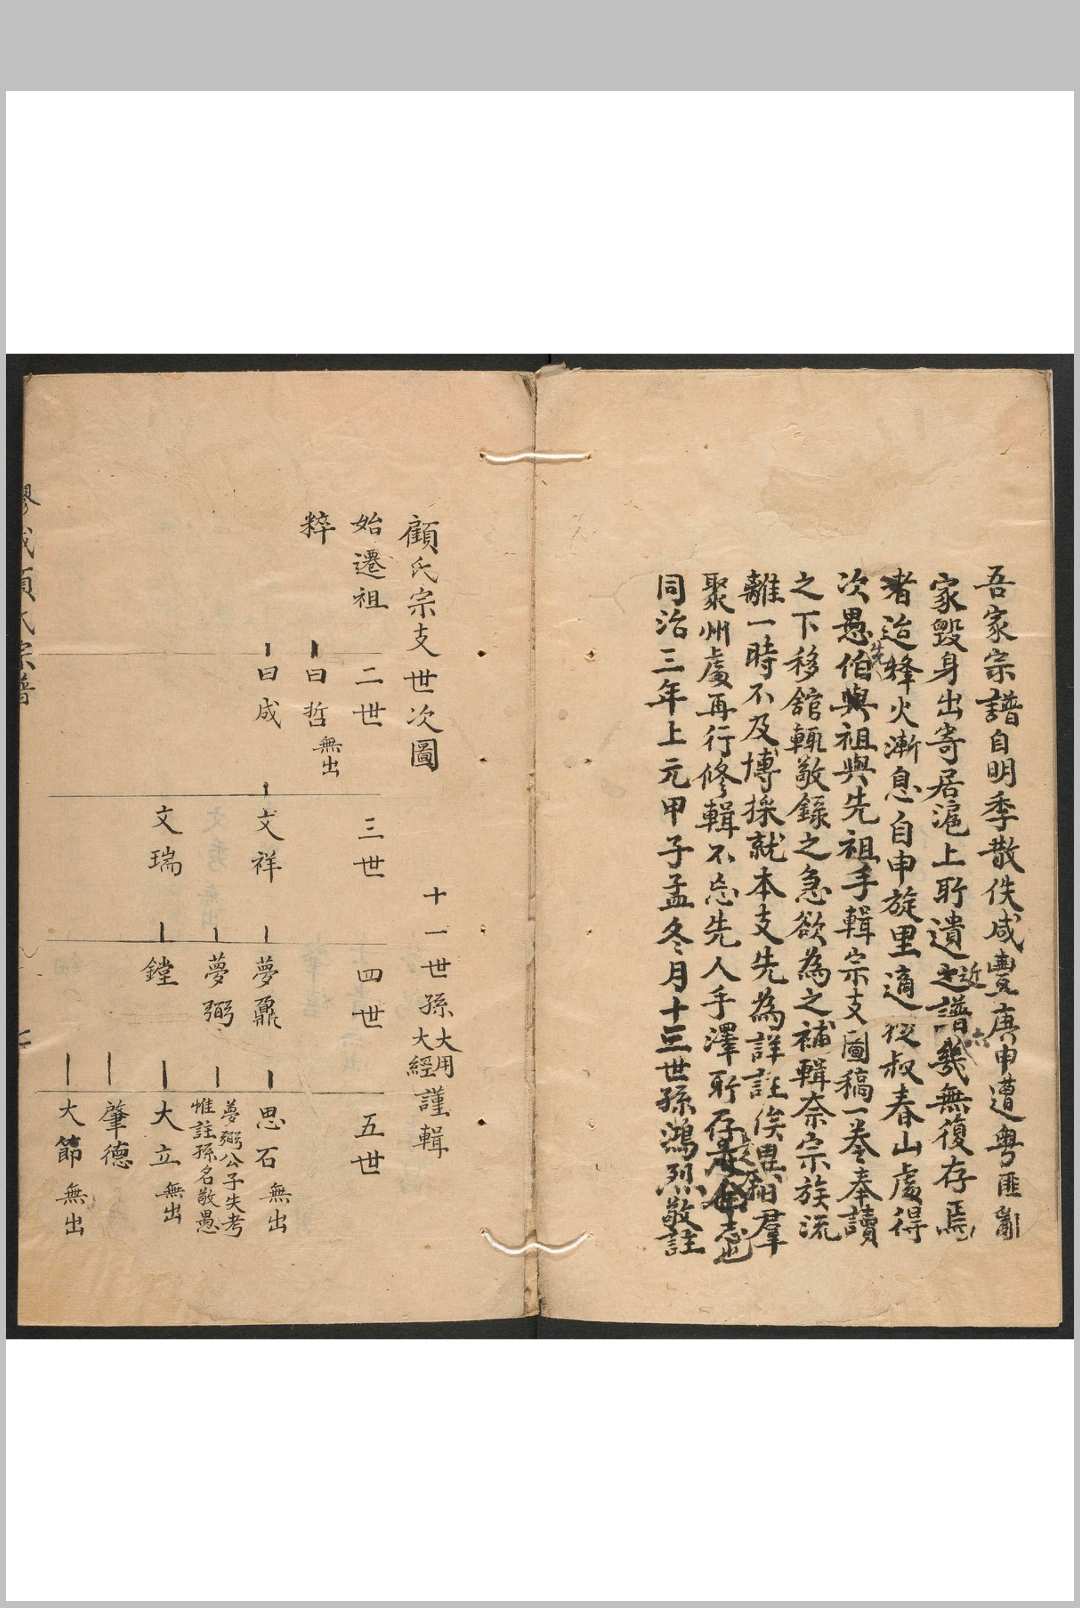 吾家宗譜自明季散佚咸豐庚申遭粵匪亂
家毀身出寄居滬上所遺之譜幾無復存焉
近
者迨烽火漸息自申旋里適從叔春山處得
次愚伯與祖與先祖手輯宗支圖稿一卷奉讀
先
之下移舘輒敬錄之急欲為之補輯奈宗族流
離一時不及博採就本支先為詳註俟異日羣
聚州處再行修輯不忘先人手澤所存
志也
同治三年上元甲子孟冬月十三世孫鴻烈敬註
顧氏宗支世次圖
十一世孫大用大經謹輯
始遷祖 二世 三世 四世 五世
粹 曰哲無出
曰成 文祥 夢鼐 思石無出
夢弼 夢弼公子失考惟註孫名敬愚
文瑞 鏜 大立無出
肇德
大節無出
顧氏宗譜